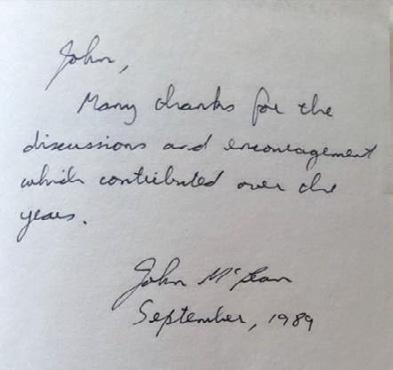 John,
Many thanks for the
discussions and encouragement
which contributed over the
years.
John McLean
September, 1989